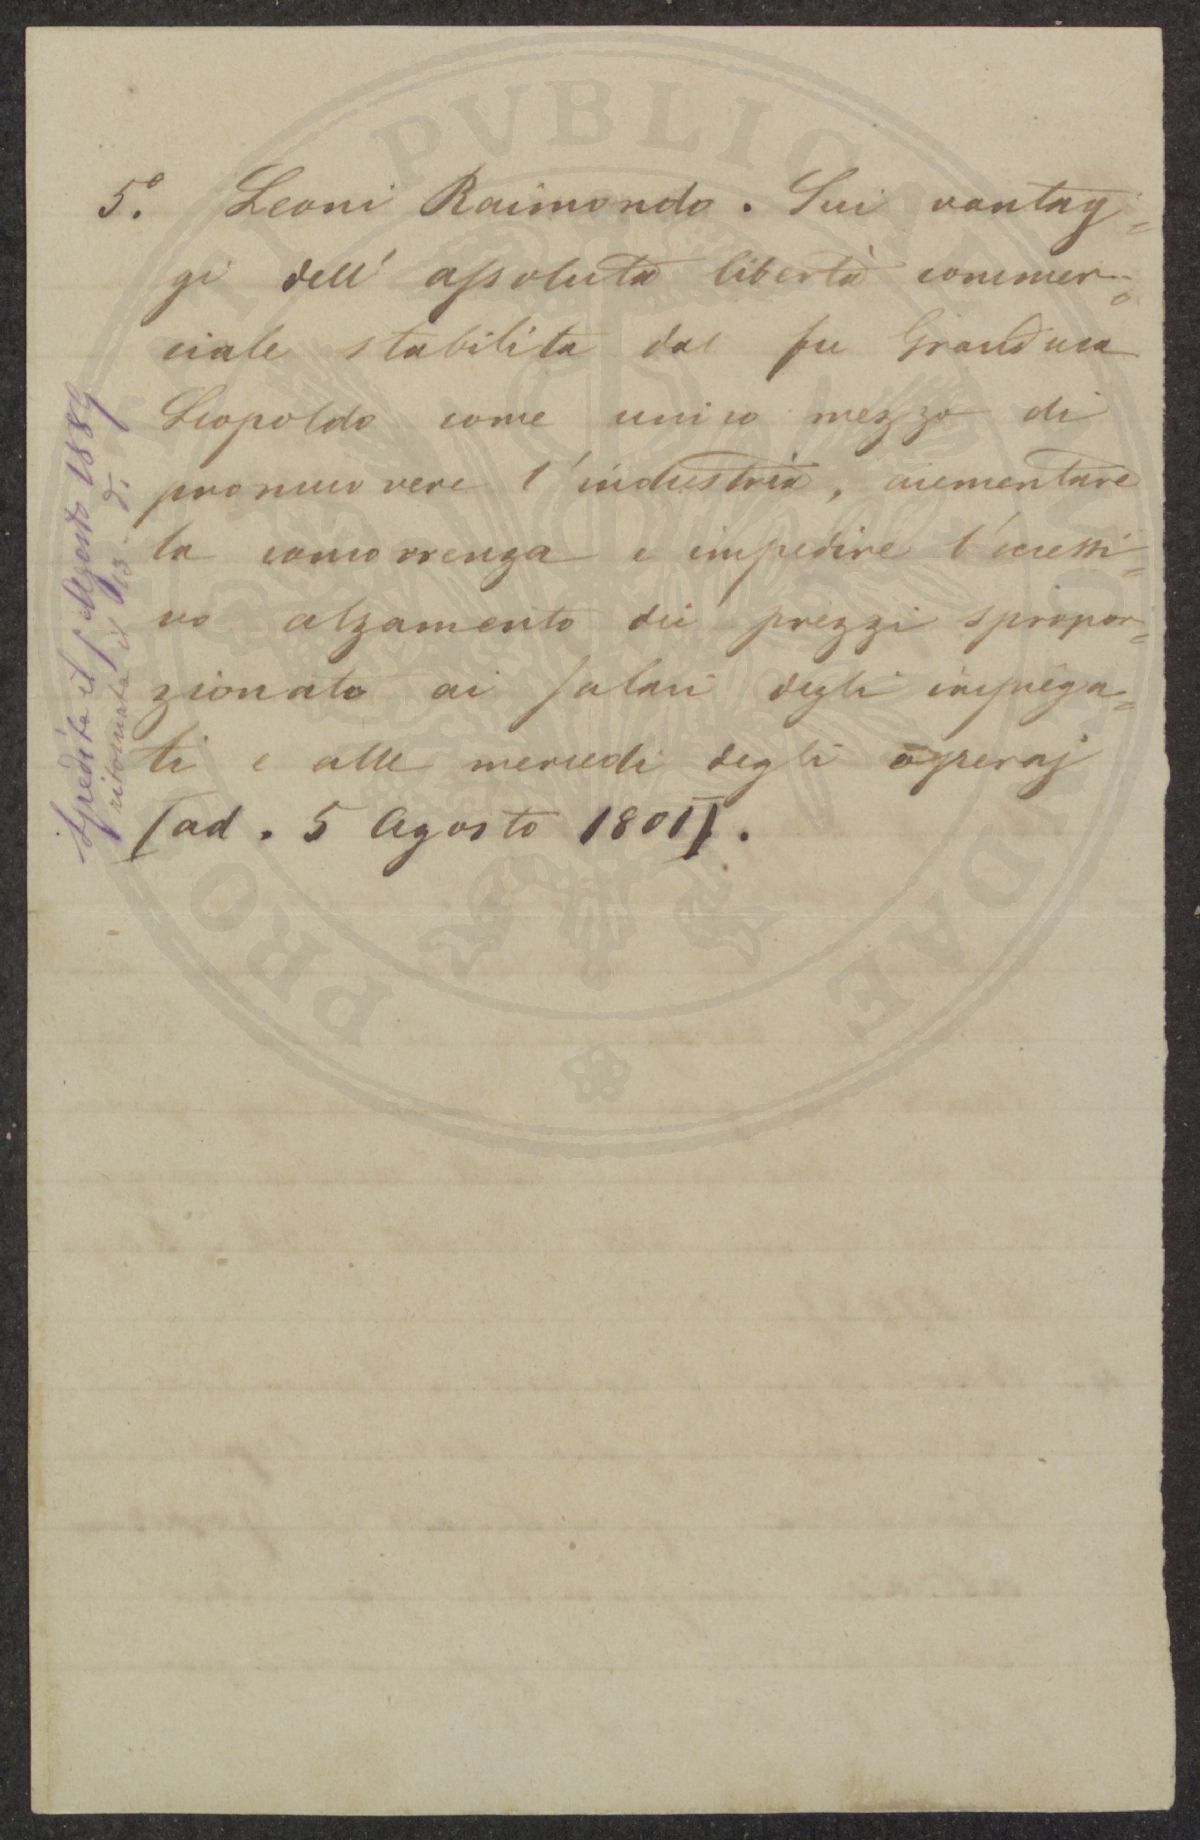 5.° Leoni Raimondo. Sui vantag=
gi dell'assoluta libertà commer=
ciale stabilita dal fu Granduca
Leopoldo come unico mezzo di
promuovere l'industria, aumentare
la concorrenza e impedire l'eccessi=
vo alzamento dei prezzi spropor=
zionato ai salari degli impiega=
ti e alle mercedi degli operaj
[ad. 5 Agosto 1801].
Spedita il 1 Agosto 1889
ritornata il 13 di
PRO BONI PUBLICI